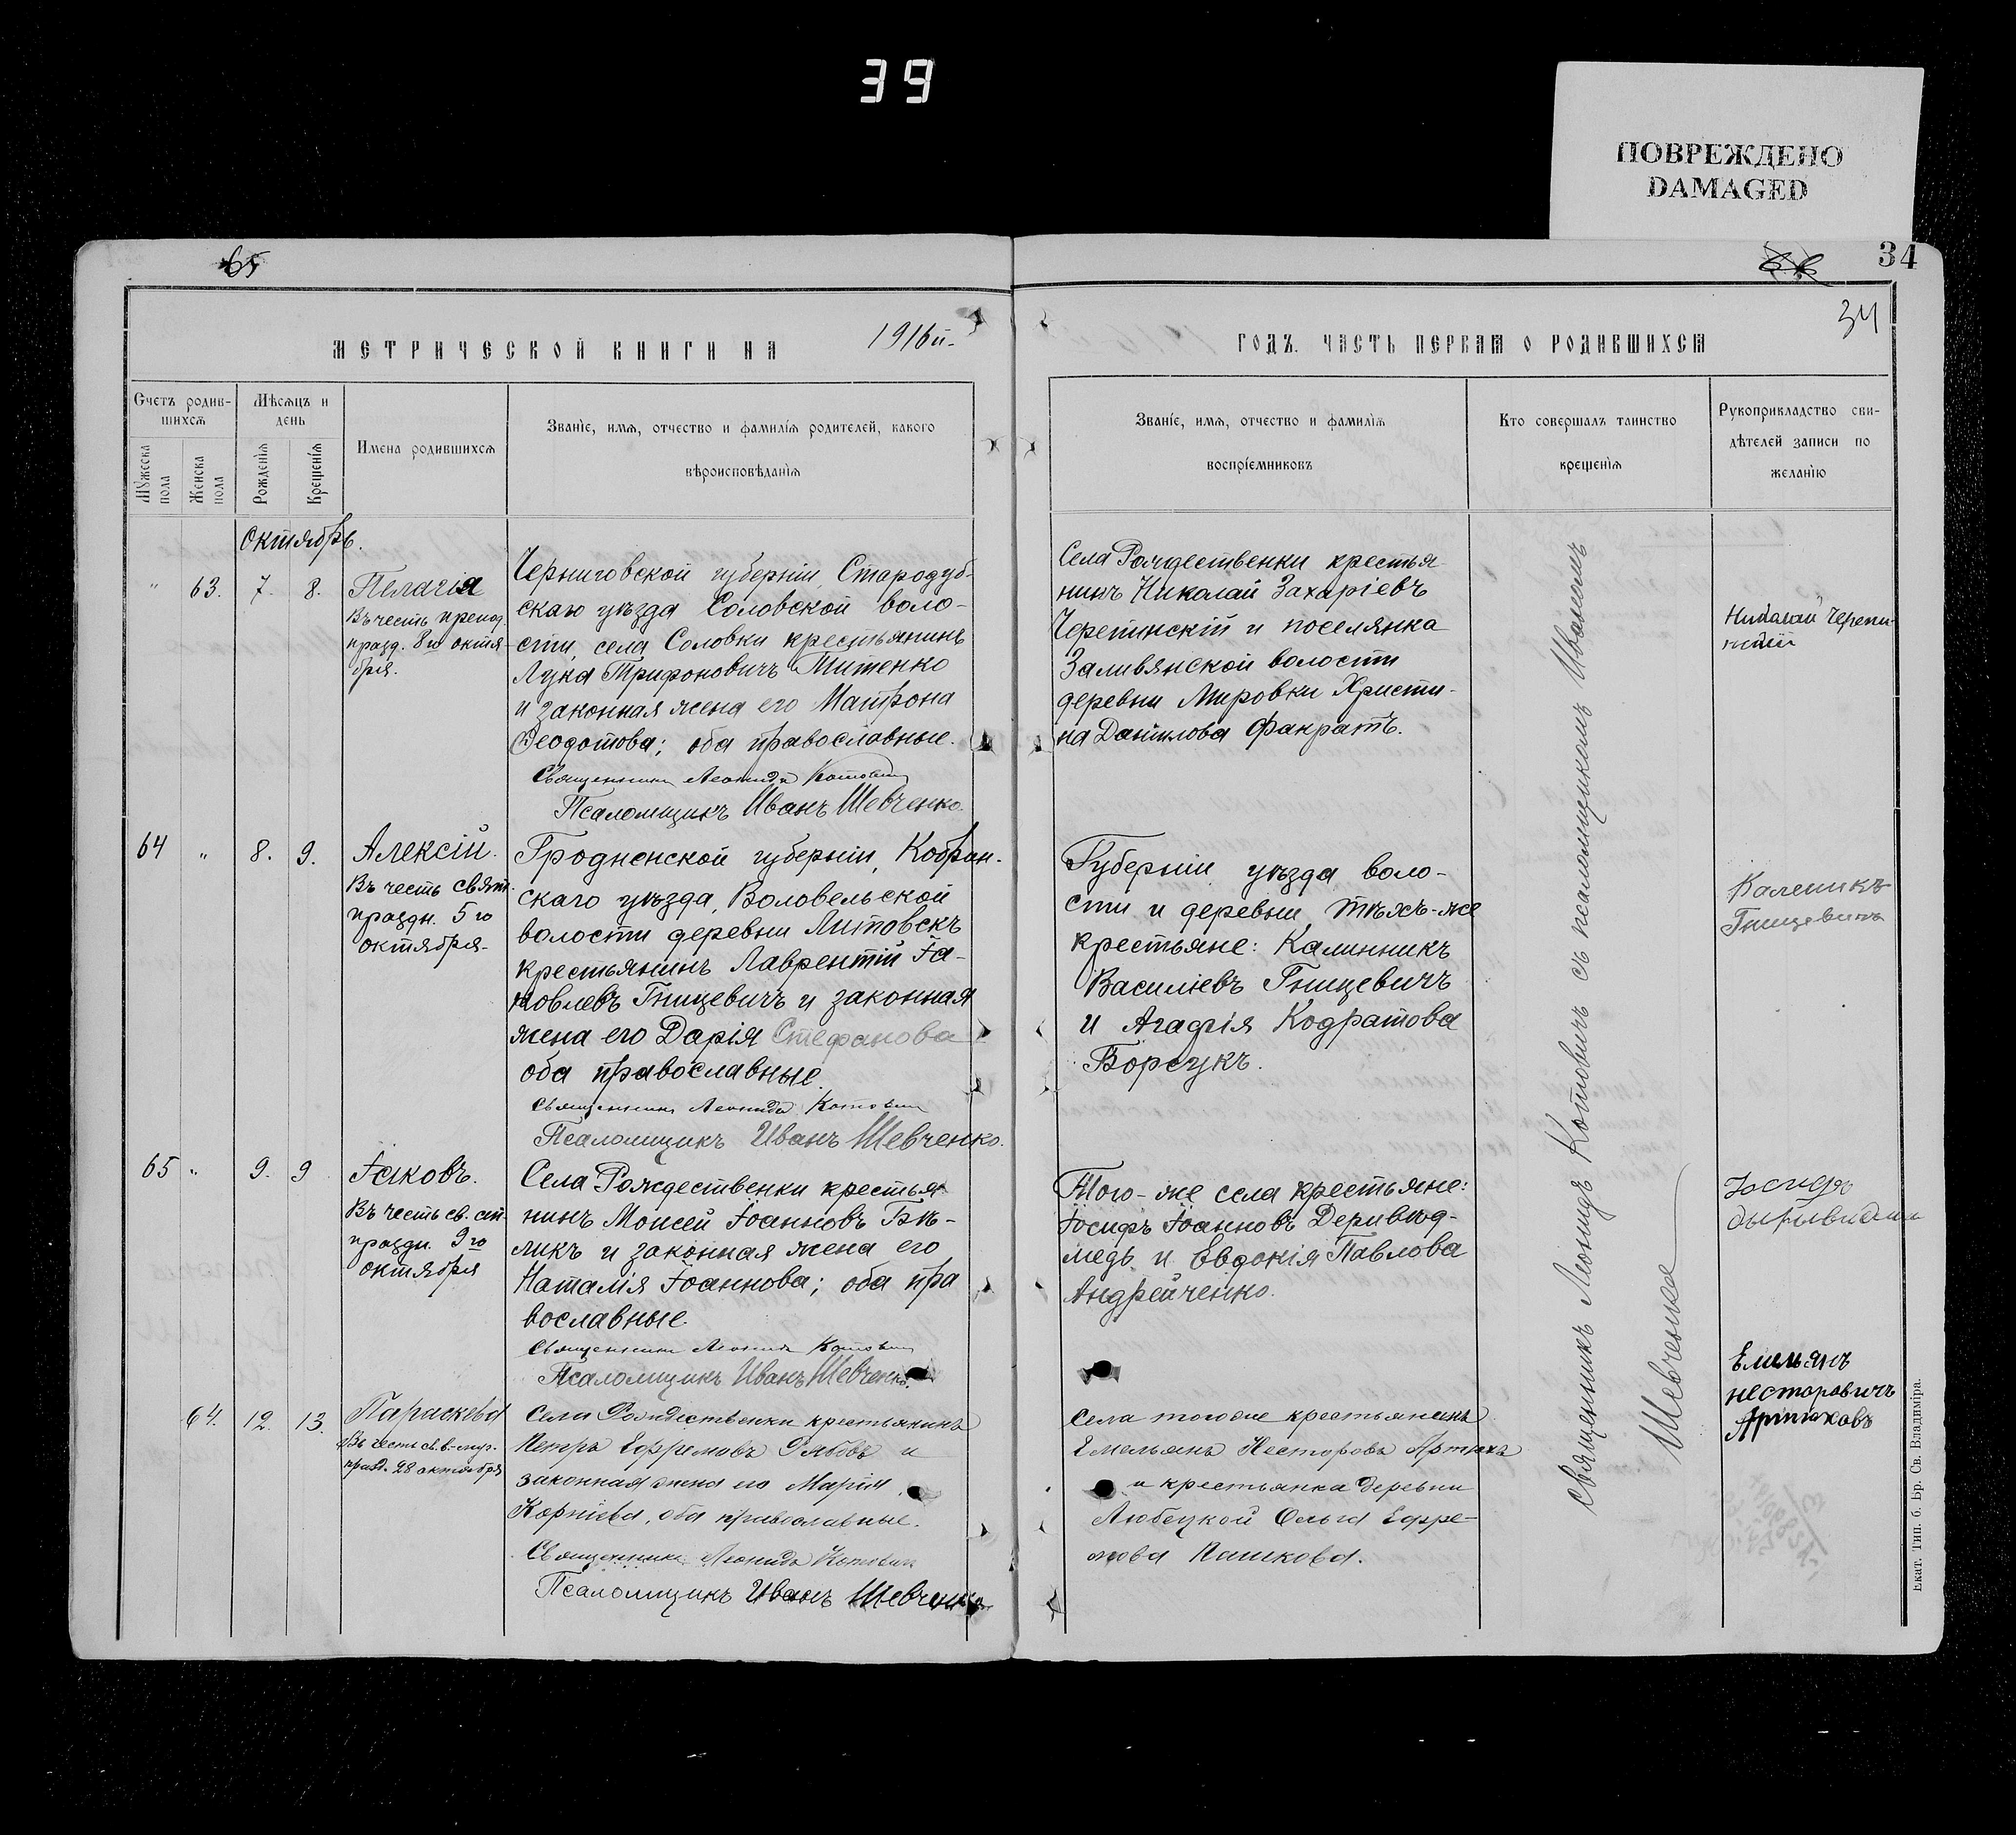 39
ПОВРЕЖДЕНО
DAMAGED
65
34
34
МЕТРИЧЕСКОЙ КНИГИ НА
1916й-
ГОДЪ. ЧАСТЬ ПЕРВАЯ О РОДИВШИХСЯ
Счетъ родив-
шихся
Мужеска
пола
Женска
пола
Мѣсяцъ и
день
Рожденія
Крещенія
Имена родившихся
Званіе, имя, отчество и фамилія родителей, какого
вѣроисповѣданія
Званіе, имя, отчество и фамилія
воспріемниковъ
Кто совершалъ таинство
крещенія
Рукоприкладство сви-
дѣтелей записи по
желанію
Октябрь.
" 63. 7. 8.
Пелагія
Въ честь препод.
празд. 8го октя-
бря.
Черниговской губерніи Стародуб-
скаго уѣзда Соловской воло-
сти, села Соловки крестьянинъ
Лука Трифоновичъ Титенко
и законная жена его Матрона
Ѳеодотова; оба православные.
Священникъ Леонидъ Котовичъ
Псаломщикъ Иванъ Шевченко.
Села Рождественки крестья-
нинъ Николай Захаріевъ
Черепинскій и поселянка
Заливянской волости
деревни Мировки Христи-
на Данилова Фанратъ.
Николай Черепи-
64 " 8. 9.
Алексій.
Въ честь свят.
праздн. 5го
октября-
Гродненской губерніи, Кобрин-
скаго уѣзда, Воловельской
волости деревни Литовскъ
крестьянинъ Лаврентій Іа-
ковлевъ Гницевичъ и законная
жена его Дарія Стефанова
оба православные.
Священникъ Леонидъ Котовичъ
Псаломщикъ Иванъ Шевченко.
Губерніи уѣзда воло-
сти и деревни тѣхъ-же
крестьяне: Калинникъ
Василіевъ Гницевичъ
и Агафія Кодратова
Борсукъ.
Каленикъ
Гницевичъ
65 " 9. 9
Іаковъ.
Въ честь св. ап.
праздн. 9го
октября
Села Рождественки крестья-
нинъ Моисей Іоанновъ Бѣ-
ликъ и законная жена его
Наталія Іоаннова; оба пра
вославные.
Священникъ Леонидъ Котовичъ
Псаломщикъ Иванъ Шевченко.
Того-же села крестьяне:
Іосифъ Іоанновъ Деривед-
медь и Евдокія Павлова
Андрейченко.
Іосифъ
64. 12. 13.
Параскева
Въ честь св. в.-муч.
празд. 28 октября
Села Рождественки крестьянинъ
Петръ Ефремовъ и
законная жена его Марія
Корніева, оба православные.
Священникъ Леонидъ Котовичъ
Псаломщикъ Иванъ Шевченко
Села того же крестьянинъ
Емельянъ Несторовъ Артюхъ
и крестьянка деревни
Любецкой Ольга Ефре-
мова Пашкова.
Емельянъ
несторовичъ
Артюховъ
Священникъ Леонидъ Котовичъ съ псаломщикомъ Иваномъ
Шевченко
Екат. Тип. б. Бр. Св. Владиміра.